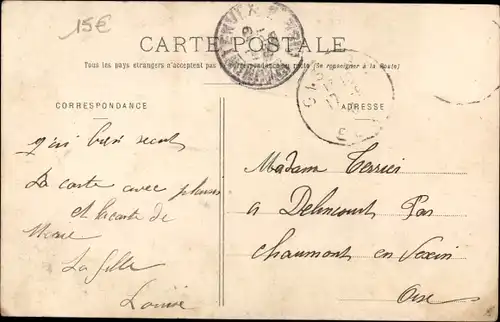 15€
CARTE POSTALE
Tous les pays étrangers n'acceptent pas la correspondance au recto (Se renseigner à la Poste)
CORRESPONDANCE
ADRESSE
J'ai bien recut
La carte avec plaisir
et la carte de
Marie
La fille
Louise
Madame Terrier
a Delincourt Par
Chaumont en Vexin
Oise